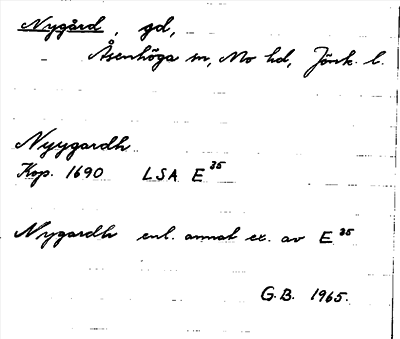 Nygård, gd,
Åsenhöga sn, Mo hd, Jönk. l.
Nyygardh
Kop. 1690 LSA E 35
Nygardh enl. annat ex. av E 35
G.B. 1965.